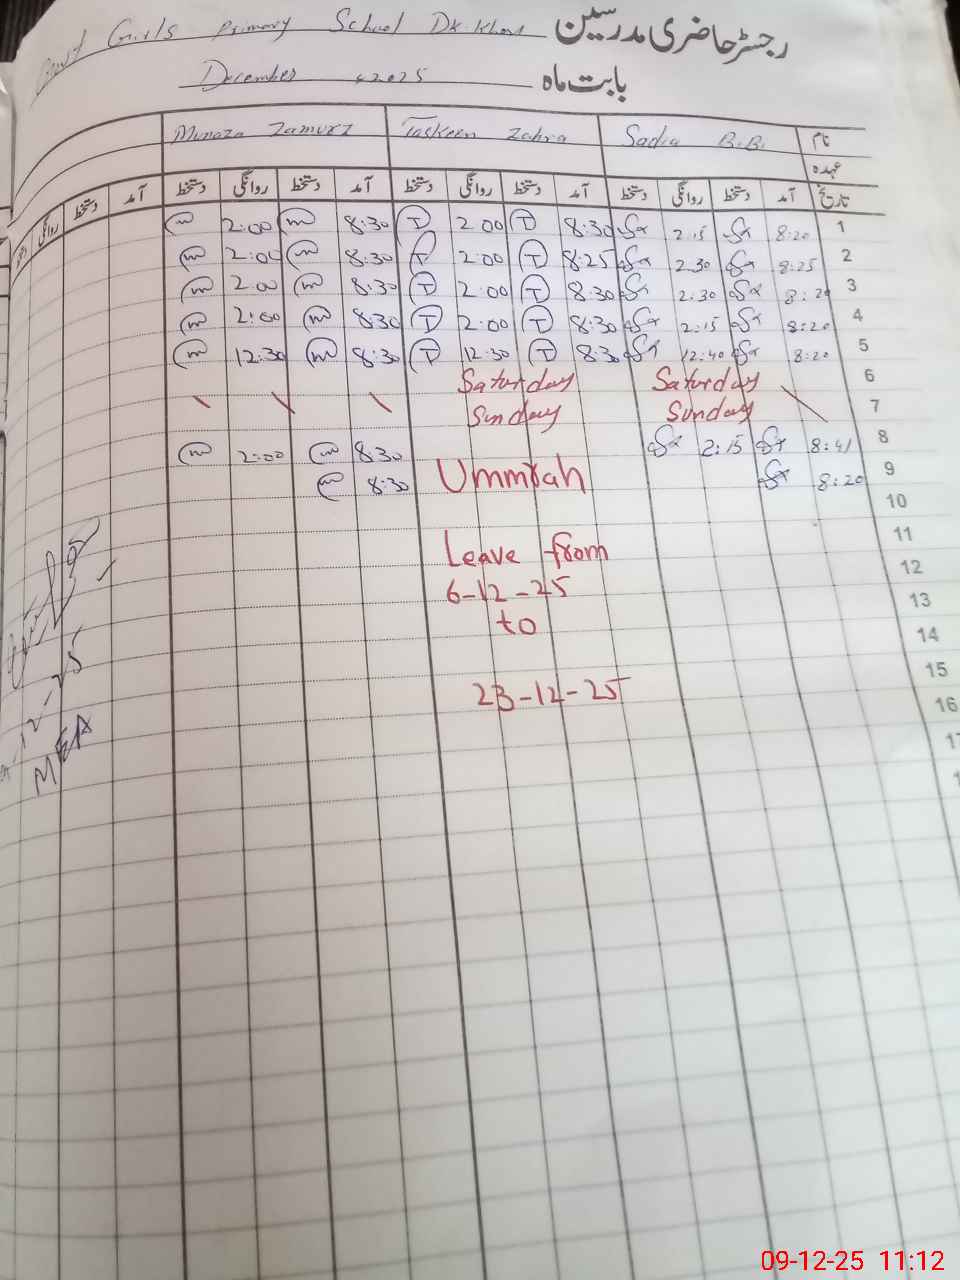 Govt Girls Primary School Dk Khan رجسٹر حاضری مدرسین
December 2025 بابت ماہ
Munaza Zamurz Taskeen Zahra Sadia B.B. نام
عہدہ
روانگی دستخط آمد دستخط روانگی دستخط آمد دستخط روانگی دستخط آمد دستخط روانگی دستخط آمد تاریخ
m 2:00 m 8:30 T 2:00 T 8:30 2:15 8:20 1
m 2:00 m 8:30 T 2:00 T 8:25 2:30 8:25 2
m 2:00 m 8:30 T 2:00 T 8:30 2:30 8:20 3
m 2:00 m 8:30 T 2:00 T 8:30 2:15 8:20 4
m 12:30 m 8:30 T 12:30 T 8:30 12:40 8:20 5
Saturday Saturday 6
Sunday Sunday 7
m 2:00 m 8:30 2:15 8:41 8
m 8:30 Ummrah 8:20 9
10
11
Leave from
12
6-12-25
13
to
14
15
23-12-25
16
17
MEA
09-12-25 11:12